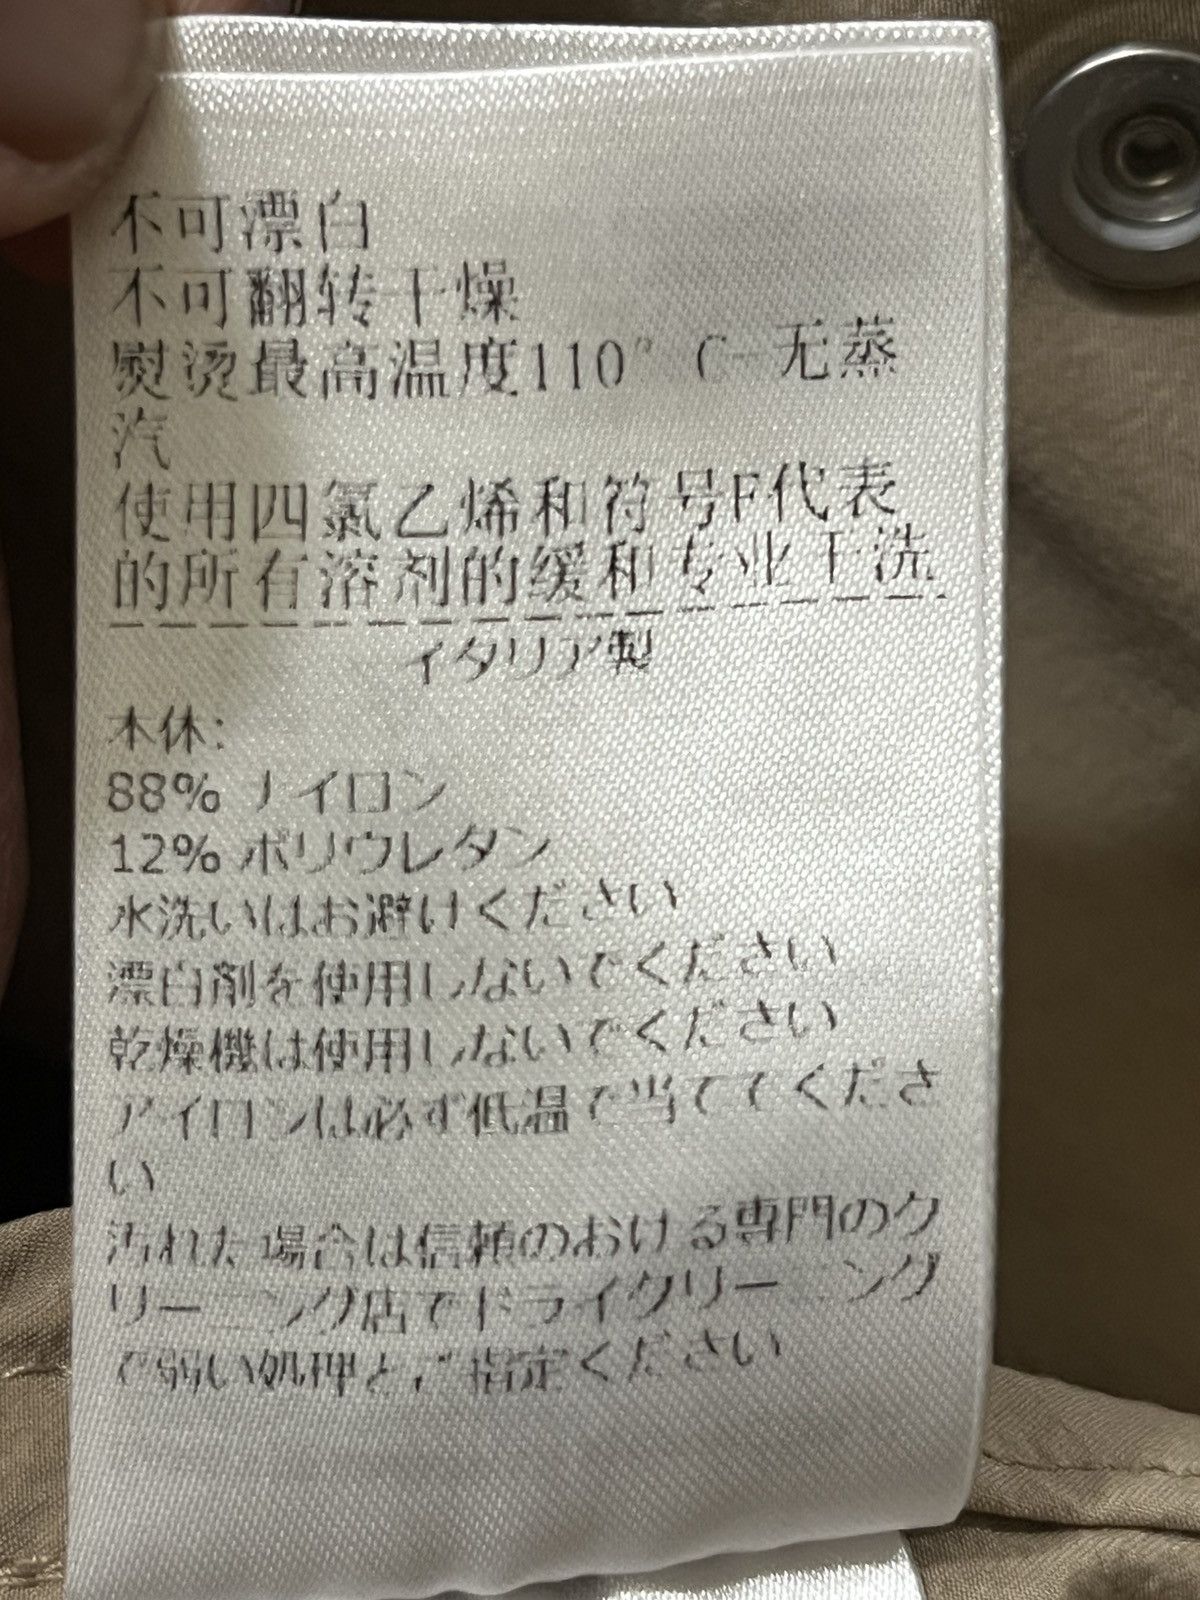 不可漂白
不可翻转干燥
熨烫最高温度110° C 无蒸
汽
使用四氯乙烯和符号F代表
的所有溶剂的缓和专业干洗
イタリア製
本体:
88% ナイロン
12% ポリウレタン
水洗いはお避けください
漂白剤を使用しないでください
乾燥機は使用しないでください
アイロンは必ず低温で当ててくださ
い
汚れた場合は信頼のおける専門のク
リーニング店でドライクリーニング
で弱い処理とご指定ください